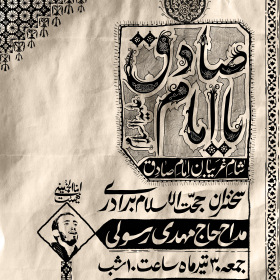 یا امام صادق
علیه السلام
شام غریبان امام صادق
سخنران حجت الاسلام برادری
مداح حاج مهدی رسولی
جمعه ۳۰ تیرماه ساعت ۱۰ شب